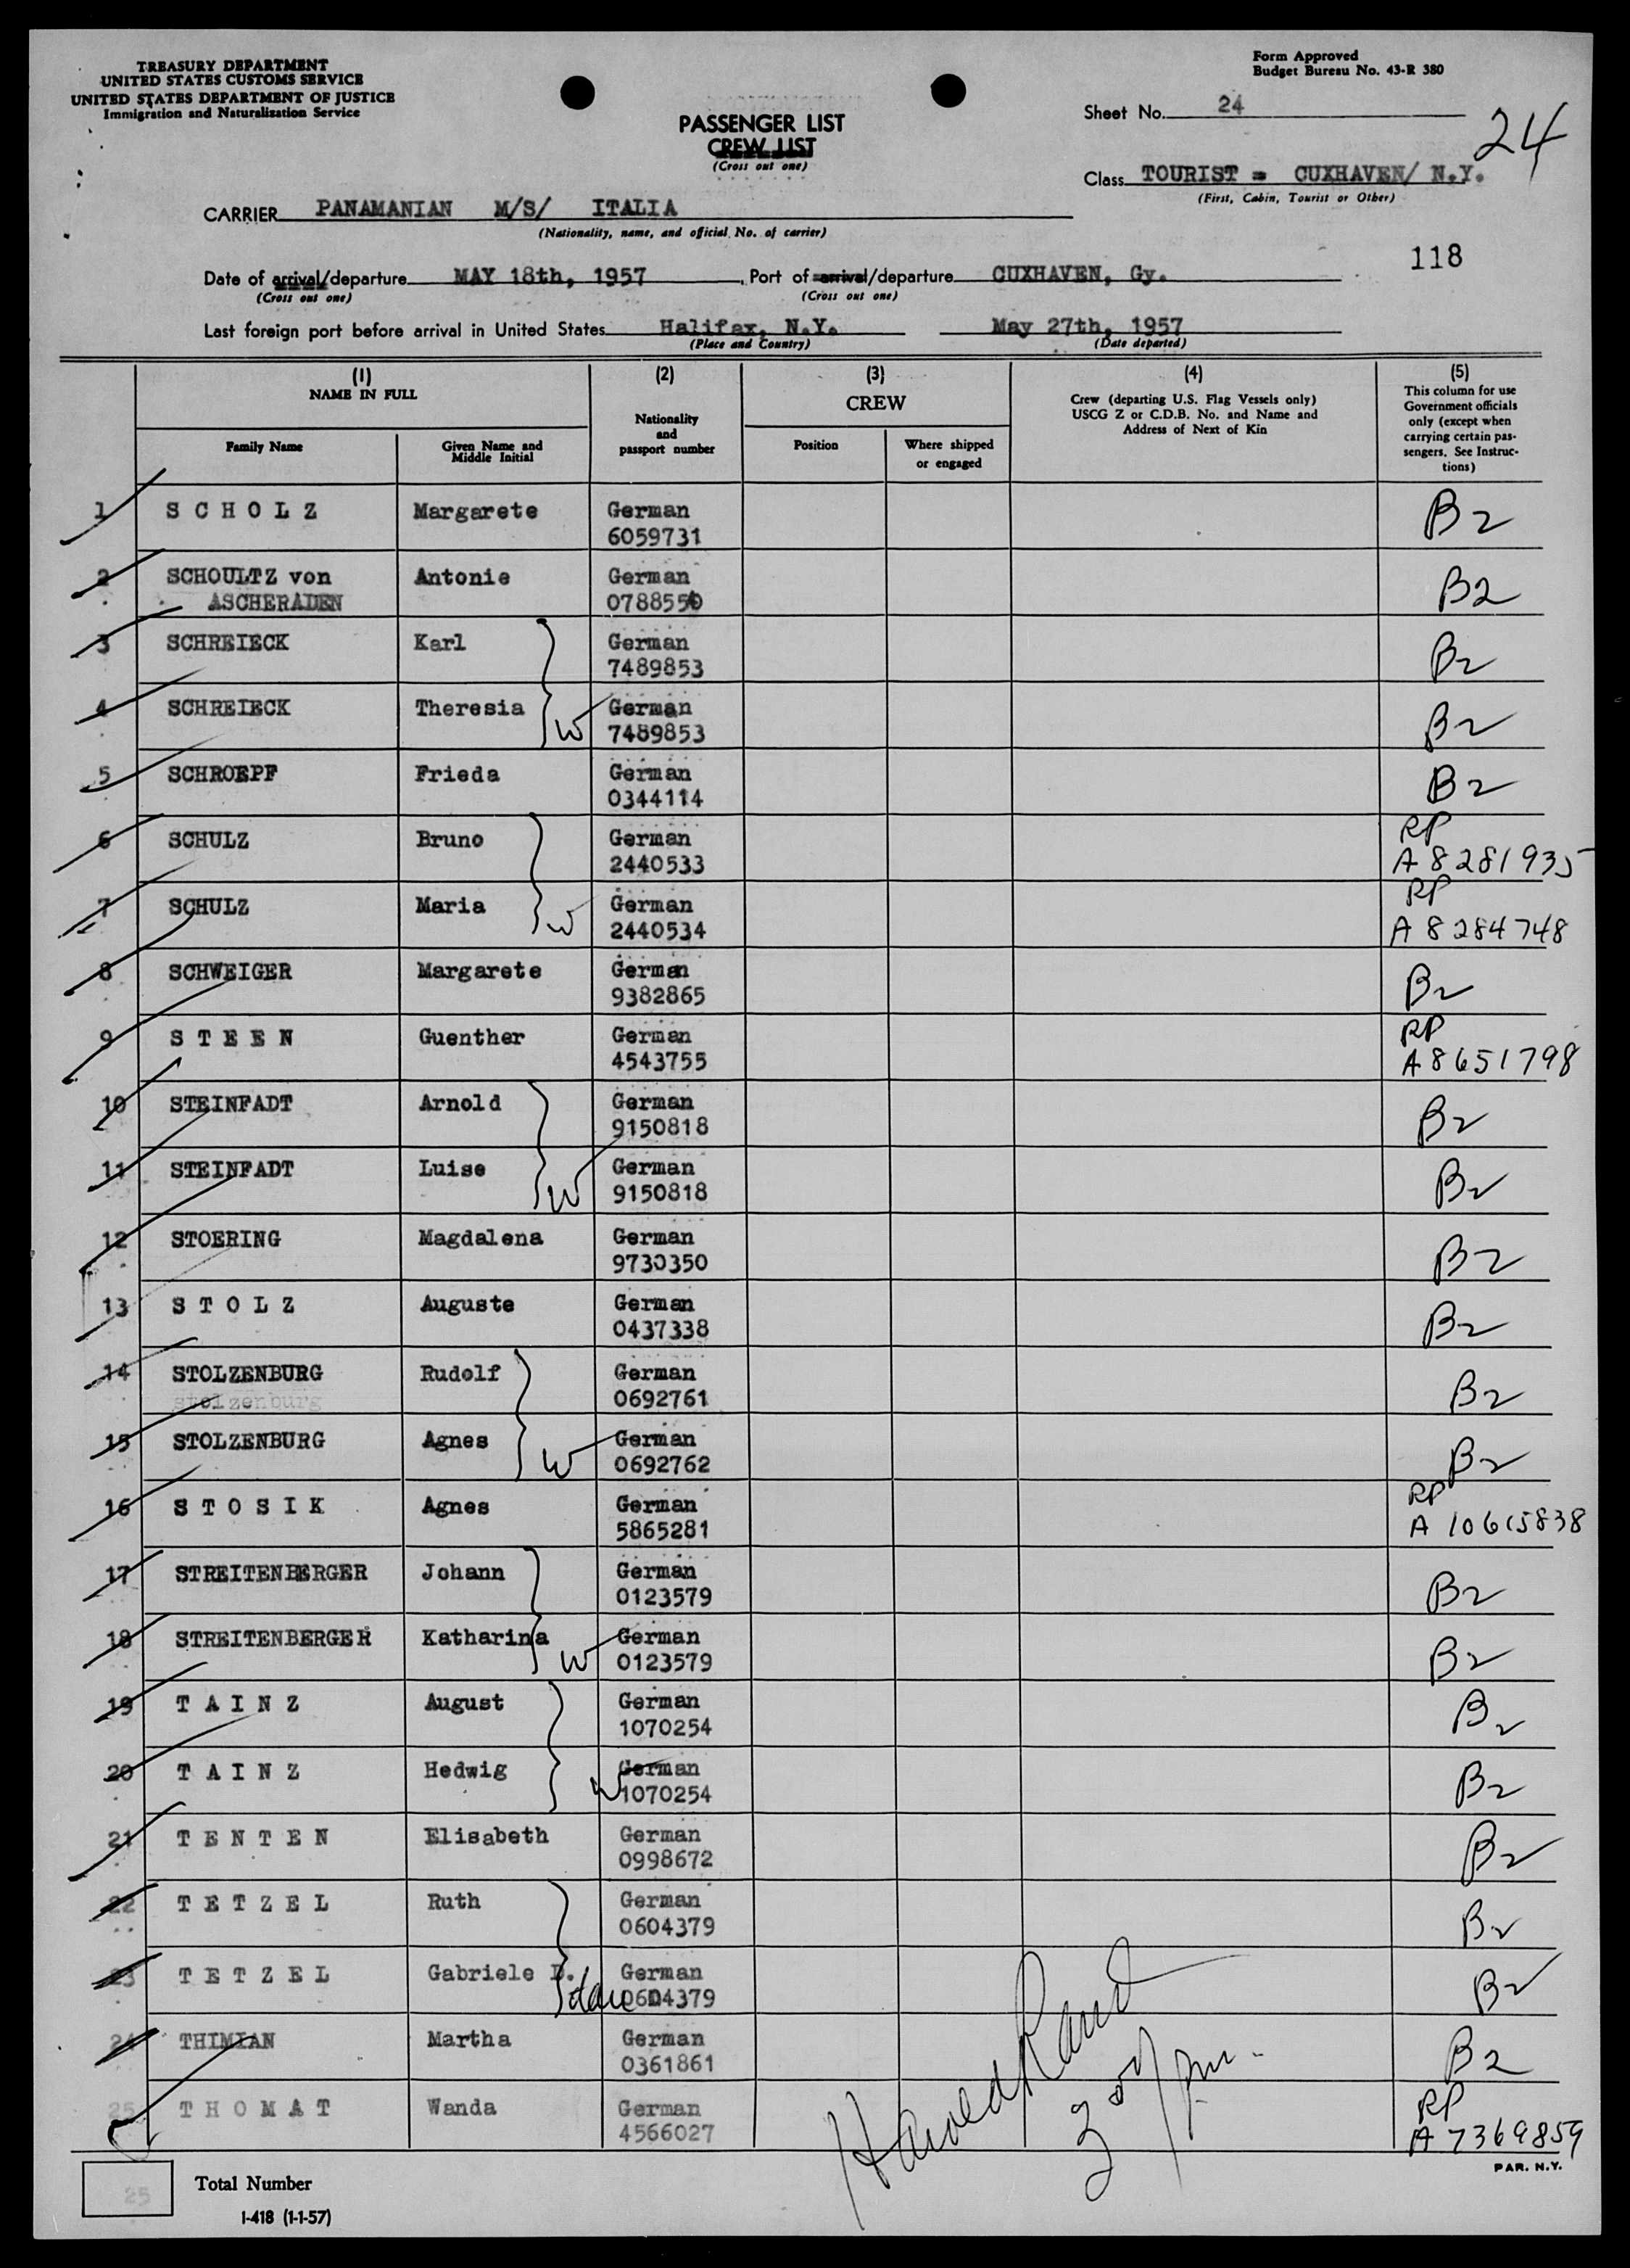 TREASURY DEPARTMENT
UNITED STATES CUSTOMS SERVICE
UNITED STATES DEPARTMENT OF JUSTICE
Immigration and Naturalization Service
Form Approved
Budget Bureau No. 43-R 380
PASSENGER LIST
CREW LIST
(Cross out one)
Sheet No. 24
24
Class TOURIST = CUXHAVEN/ N.Y.
(First, Cabin, Tourist or Other)
CARRIER PANAMANIAN M/S/ ITALIA
(Nationality, name, and official No. of carrier)
118
Date of arrival/departure MAY 18th, 1957, Port of arrival/departure CUXHAVEN, Gy.
(Cross out one) (Cross out one)
Last foreign port before arrival in United States Halifax, N.Y. May 27th, 1957
(Place and Country) (Date departed)
(1) (2) (3) (4) (5)
NAME IN FULL
Family Name
Given Name and Middle Initial
Nationality and passport number
CREW
Position
Where shipped or engaged
Crew (departing U.S. Flag Vessels only)
USCG Z or C.D.B. No. and Name and
Address of Next of Kin
This column for use
Government officials
only (except when
carrying certain pas-
sengers. See Instruc-
tions)
1 S C H O L Z Margarete German B2
6059731
2 SCHOULTZ von Antonie German B2
ASCHERADEN 0788550
3 SCHREIECK Karl German B2
7489853
4 SCHREIECK Theresia W German B2
7489853
5 SCHROEPF Frieda German B2
0344114
6 SCHULZ Bruno German RP
2440533 A 8281935
7 SCHULZ Maria W German RP
2440534 A 8284748
8 SCHWEIGER Margarete German B2
9382865
9 S T E E N Guenther German RP
4543755 A 8651798
10 STEINFADT Arnold German B2
9150818
11 STEINFADT Luise W German B2
9150818
12 STOERING Magdalena German B2
9730350
13 S T O L Z Auguste German B2
0437338
14 STOLZENBURG Rudolf German B2
stolzenburg 0692761
15 STOLZENBURG Agnes W German B2
0692762
16 S T O S I K Agnes German RP
5865281 A 10615838
17 STREITENBERGER Johann German B2
0123579
18 STREITENBERGER Katharina W German B2
0123579
19 T A I N Z August German B2
1070254
20 T A I N Z Hedwig W German B2
1070254
21 T E N T E N Elisabeth German B2
0998672
22 T E T Z E L Ruth German B2
0604379
23 T E T Z E L Gabriele D. German B2
0604379
24 THIMIAN Martha German B2
0361861
25 T H O M A T Wanda German RP
4566027 A 7369859
PAR. N.Y.
25 Total Number
I-418 (1-1-57)